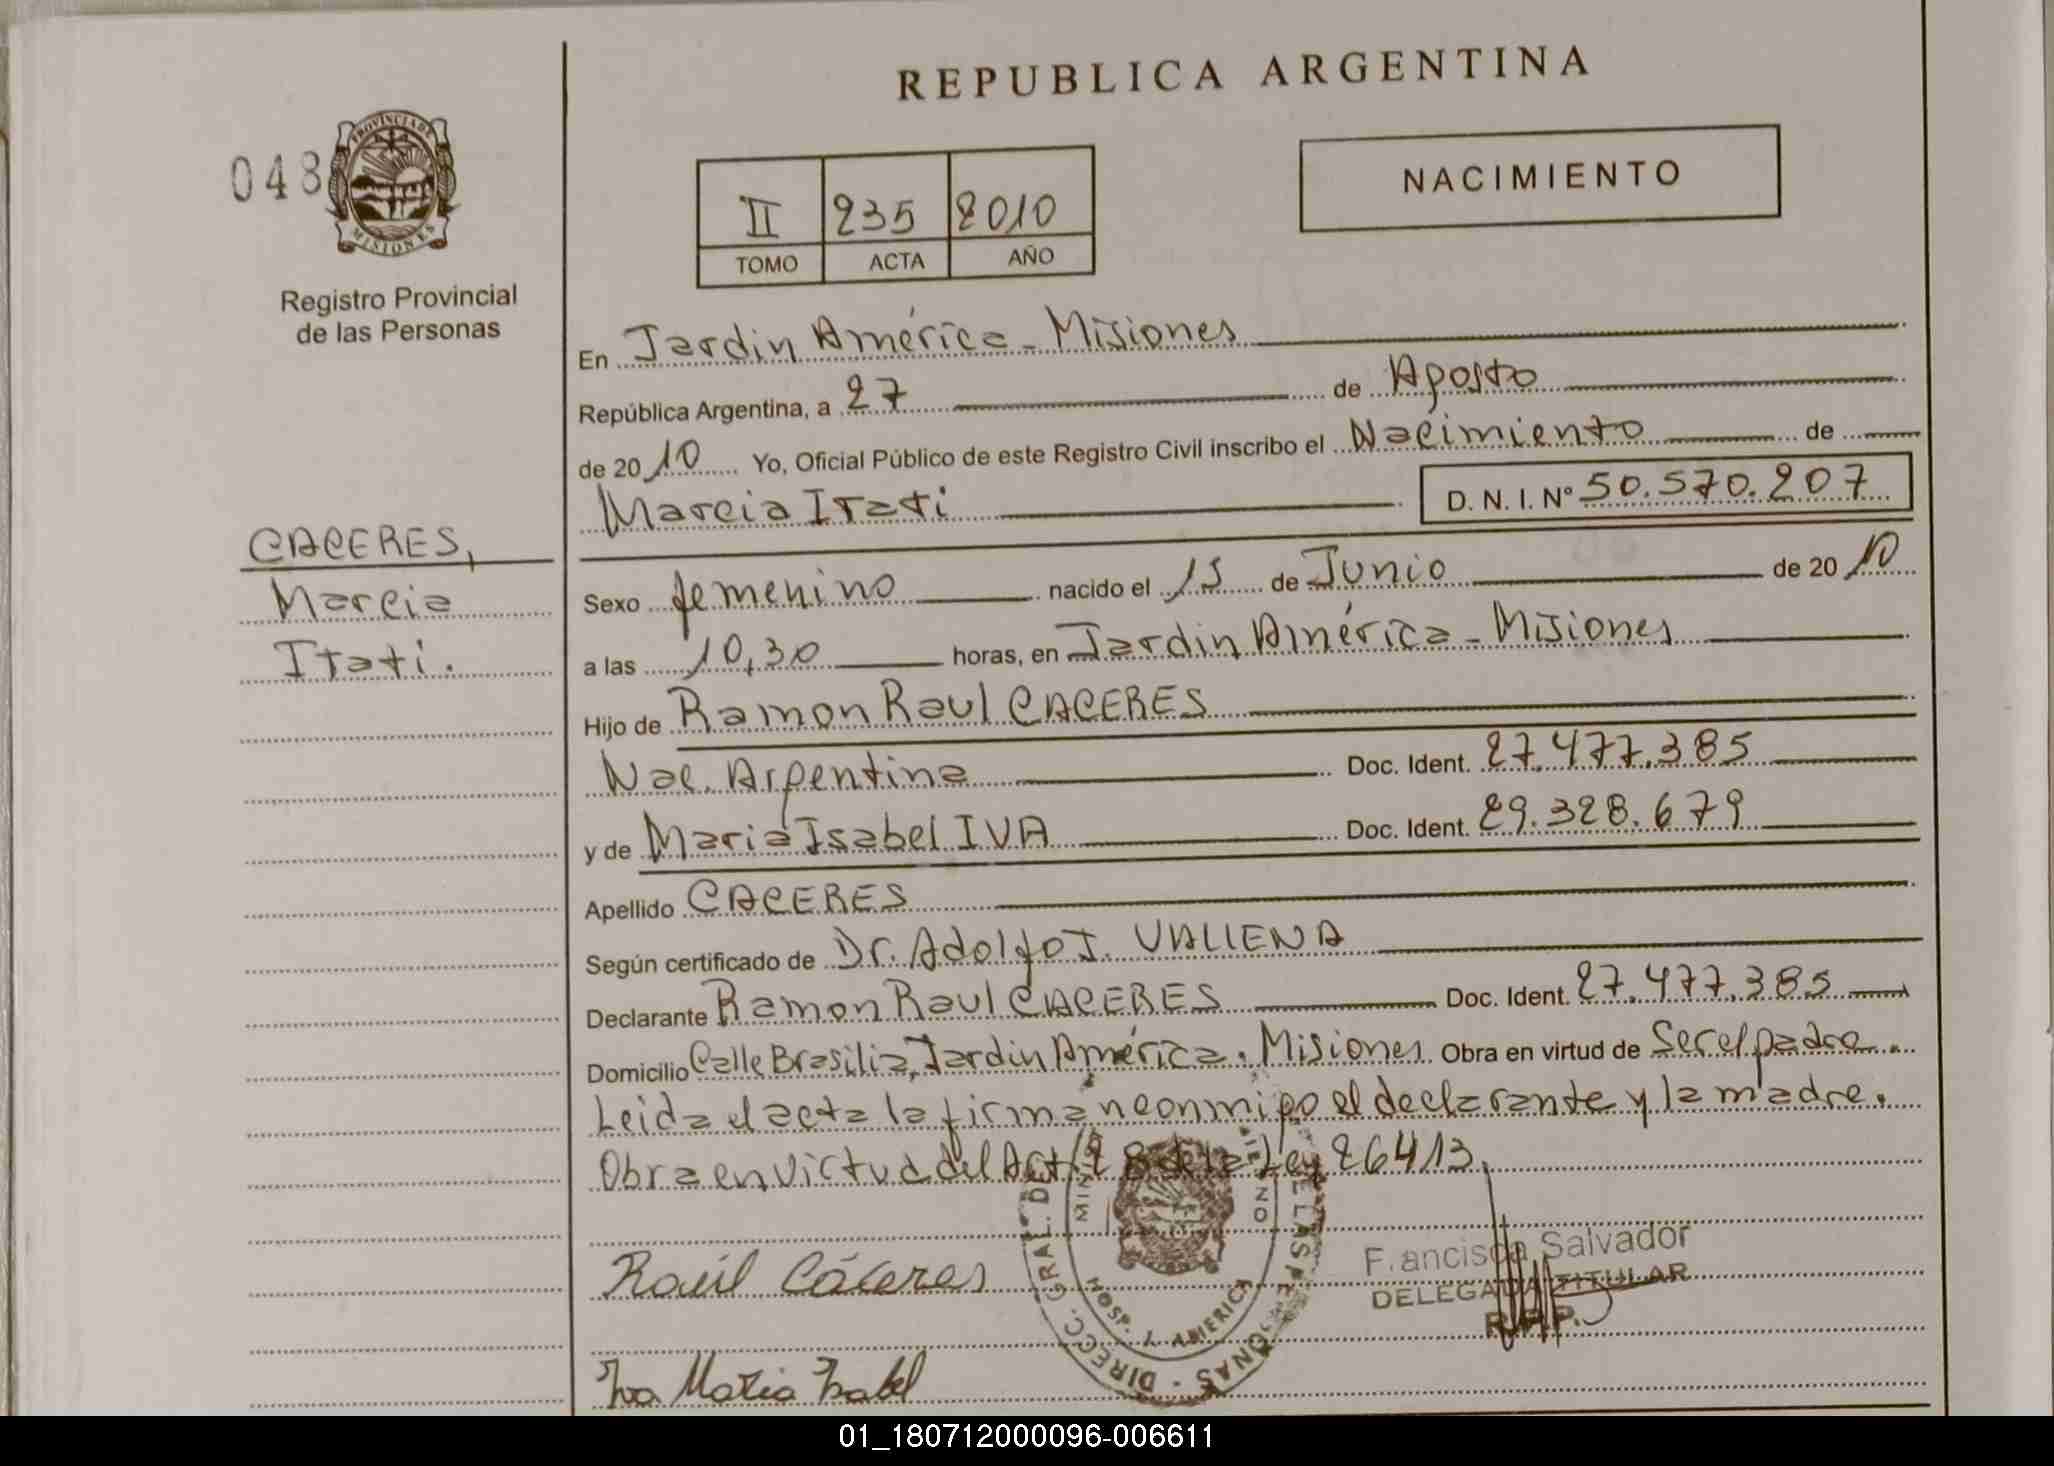 REPUBLICA ARGENTINA
048
PROVINCIA DE
MISIONES
Registro Provincial
de las Personas
II 235 2010
TOMO ACTA AÑO
NACIMIENTO
En Jardin América - Misiones
República Argentina, a 27 de Agosto
de 2010 Yo, Oficial Público de este Registro Civil inscribo el Nacimiento de
Marcia Itati D. N. I. Nº 50.570.207
CACERES,
Marcia
Itati.
Sexo femenino nacido el 15 de Junio de 2010
a las 10,30 horas, en Jardin América - Misiones
Hijo de Ramon Raul CACERES
Nac. Argentina Doc. Ident. 27.477.385
y de Maria Isabel IVA Doc. Ident. 29.328.679
Apellido CACERES
Según certificado de Dr. Adolfo J. VALLENA
Declarante Ramon Raul CACERES Doc. Ident. 27.477.385
Domicilio Calle Brasilia, Jardin América. Misiones Obra en virtud de Ser el padre.
Leida el acta la firman conmigo el declarante y la madre.
Obra en Virtud del Art. 28 de la Ley 26413
Raúl Cáceres
Iva Maria Isabel
DIRECC. GRAL. DE LAS PERSONAS
HOSP. J. AMERICA
F.ancisca Salvador
DELEGADA TITULAR
R.P.P.
01_180712000096-006611